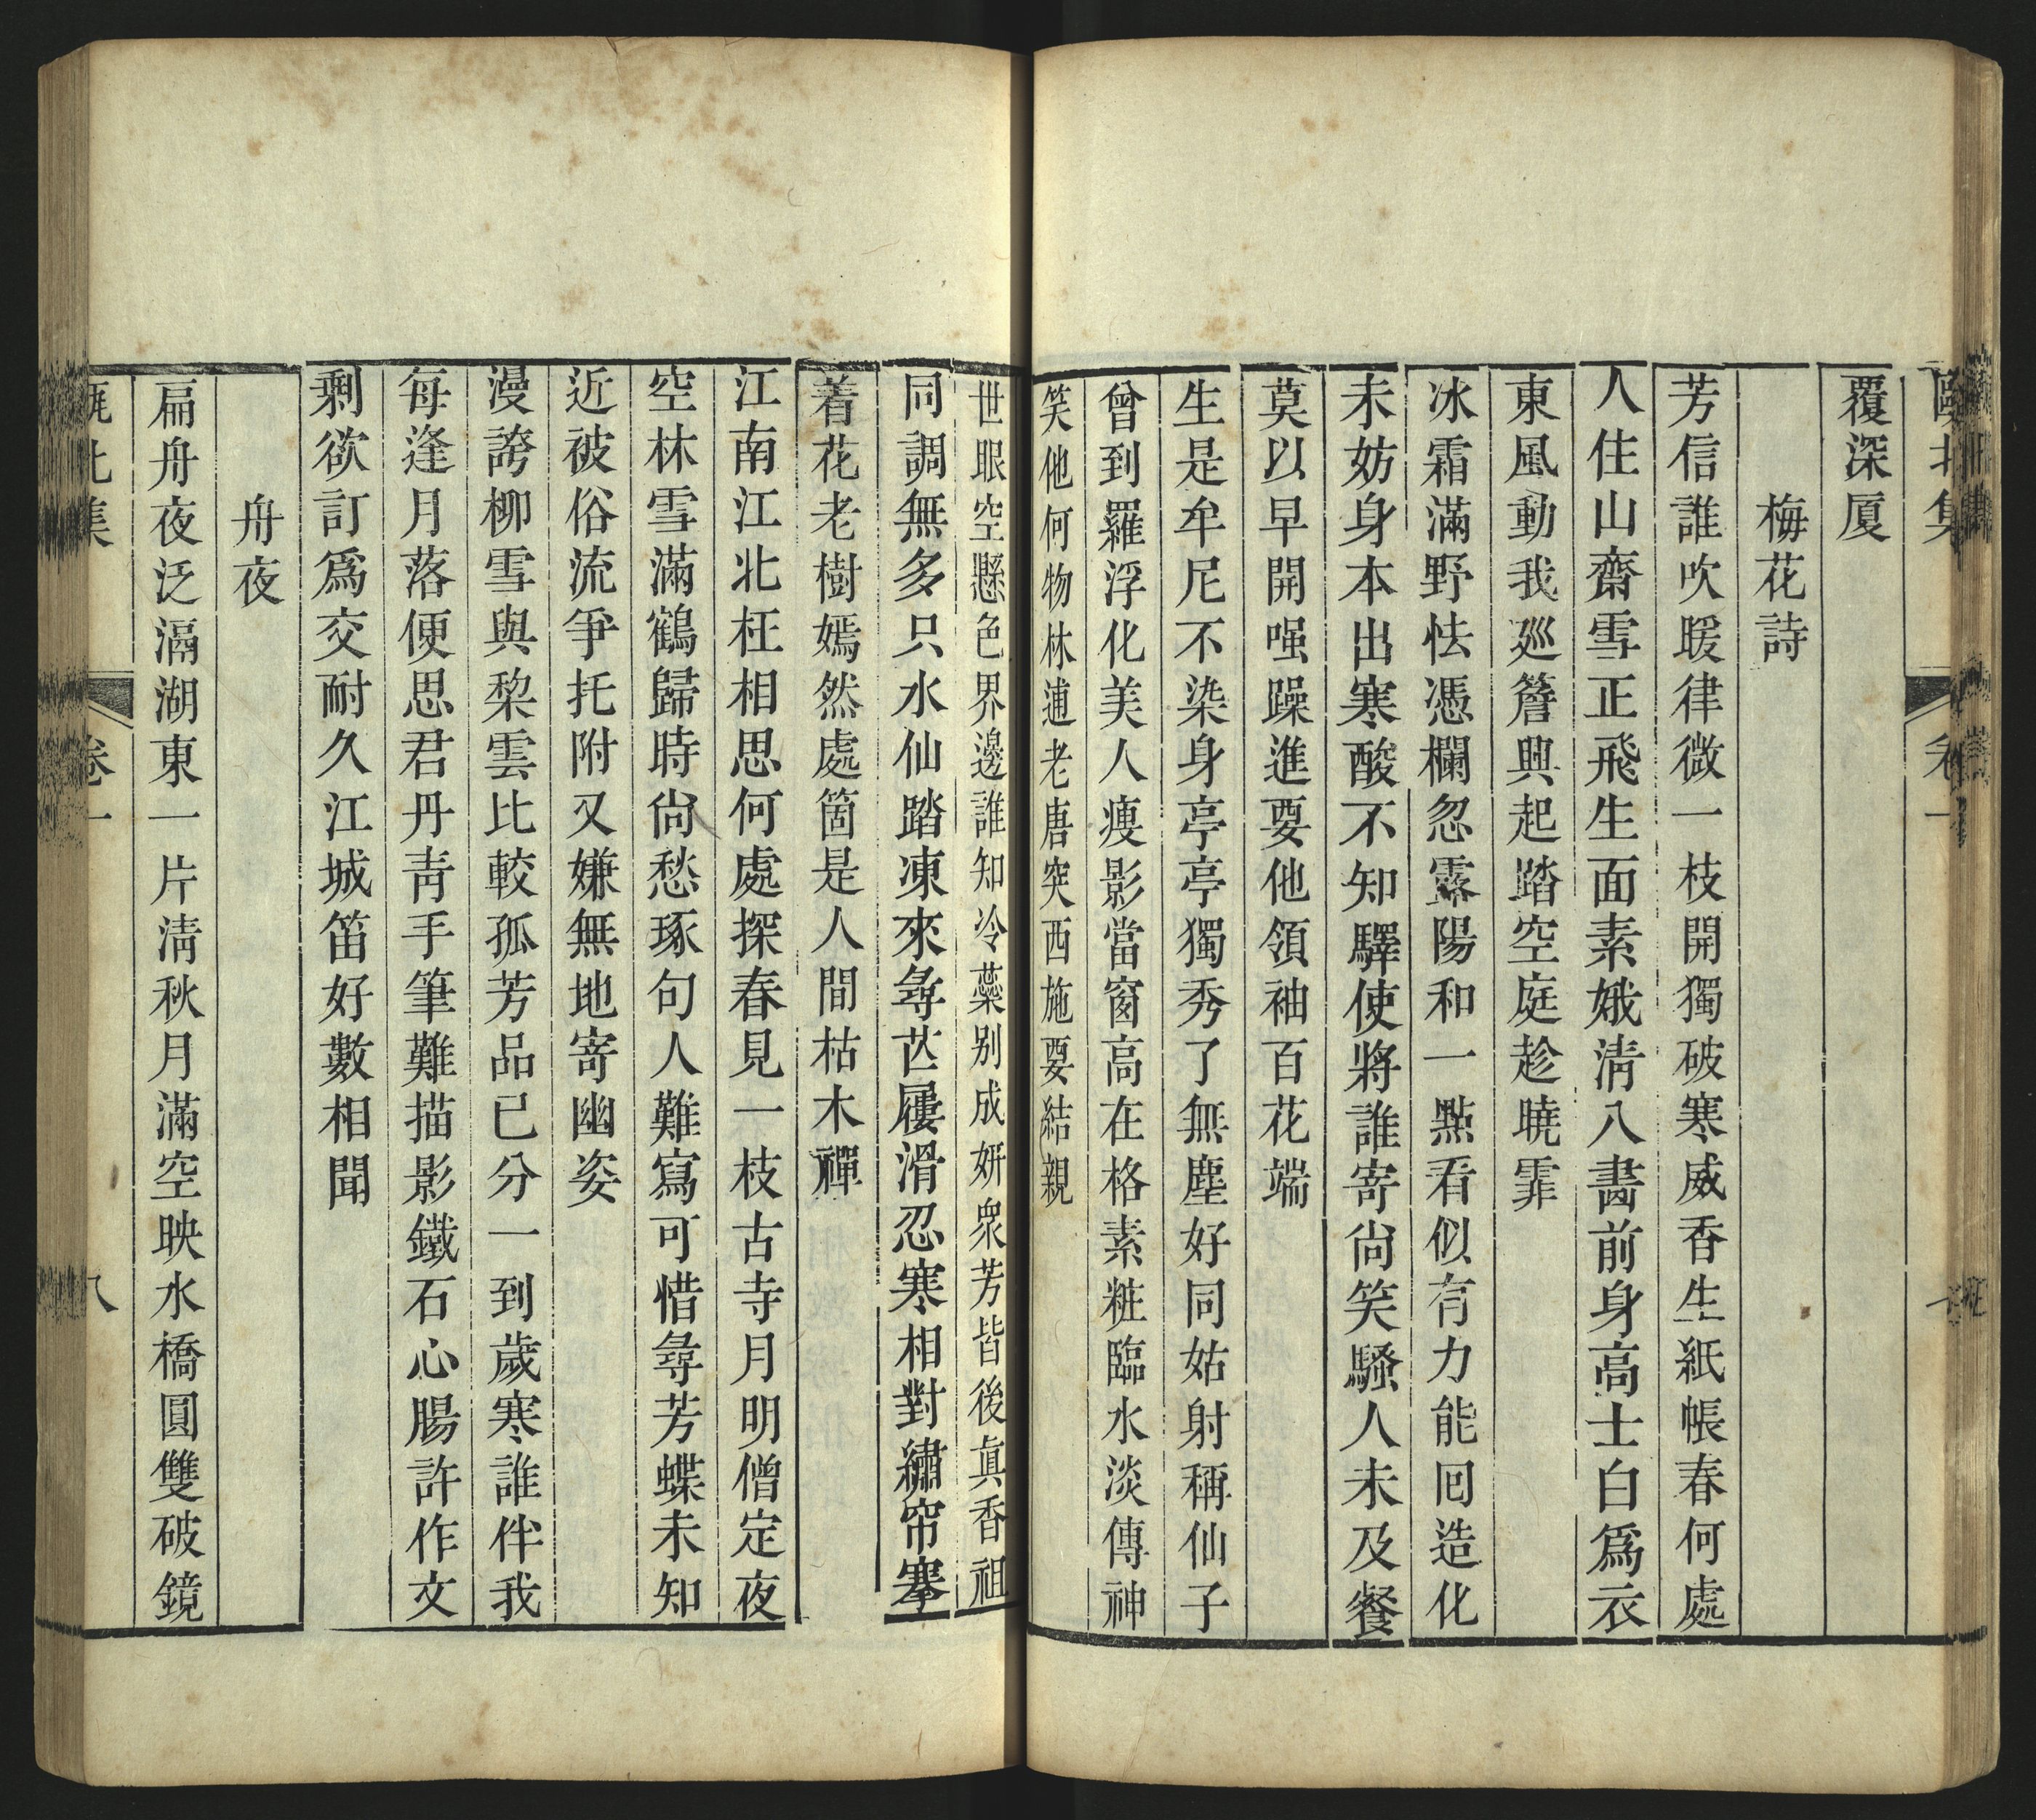 甌北集 卷一
覆深厦
梅花詩
芳信誰吹暖律微一枝開獨破寒威香生紙帳春何處
人住山齋雪正飛生面素娥淸入畵前身高士白爲衣
東風動我廵簷興起踏空庭趁曉霏
冰霜滿野怯憑欄忽露陽和一點看似有力能回造化
未妨身本出寒酸不知驛使將誰寄尙笑騷人未及餐
莫以早開嗤躁進要他領袖百花端
生是牟尼不染身亭亭獨秀了無塵好同姑射稱仙子
曾到羅浮化美人痩影當窗高在格素粧臨水淡傳神
笑他何物林逋老唐突西施要結親
世眼空懸色界邊誰知冷蘂别成妍衆芳皆後眞香祖
同調無多只水仙踏凍來尋芒屨滑忍寒相對繡帘搴
着花老樹嫣然處箇是人間枯木禪
江南江北枉相思何處探春見一枝古寺月明僧定夜
空林雪滿鶴歸時尙愁琢句人難寫可惜尋芳蝶未知
近被俗流爭托附又嫌無地寄幽姿
漫誇柳雪與棃雲比較孤芳品已分一到歲寒誰伴我
每逢月落便思君丹靑手筆難描影鐵石心腸許作文
剩欲訂爲交耐久江城笛好數相聞
舟夜
扁舟夜泛滆湖東一片淸秋月滿空映水橋圓雙破鏡
甌北集 卷一 八